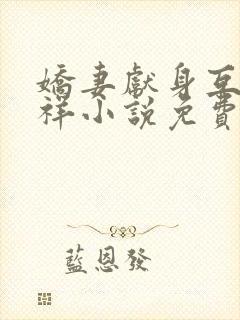 嬌妻獻身互
祥小說免費
藍恩發